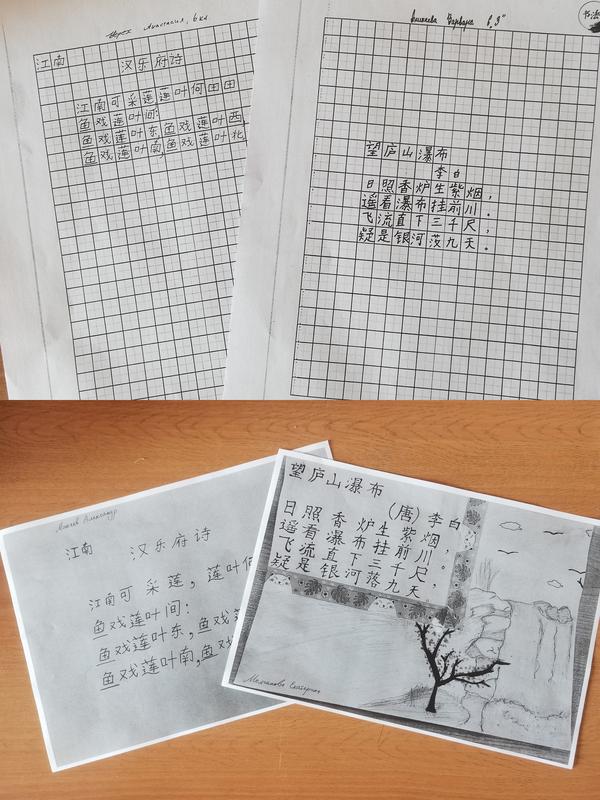 Анастасия, 6 кл
江南 汉乐府诗
江南可采莲莲叶何田田
鱼戏莲叶间:
鱼戏莲叶东,鱼戏莲叶西,
鱼戏莲叶南,鱼戏莲叶北,
Варвара
书法
望庐山瀑布
李白
日照香炉生紫烟,
遥看瀑布挂前川.
飞流直下三千尺,
疑是银河落九天.
Александр
江南 汉乐府诗
江南可采莲,莲叶何
鱼戏莲叶间:
鱼戏莲叶东,鱼戏
鱼戏莲叶南,鱼戏
望庐山瀑布
(唐)李白
日照香炉生紫烟,
遥看瀑布挂前川。
飞流直下三千尺,
疑是银河落九天
Молчанова Екатерина